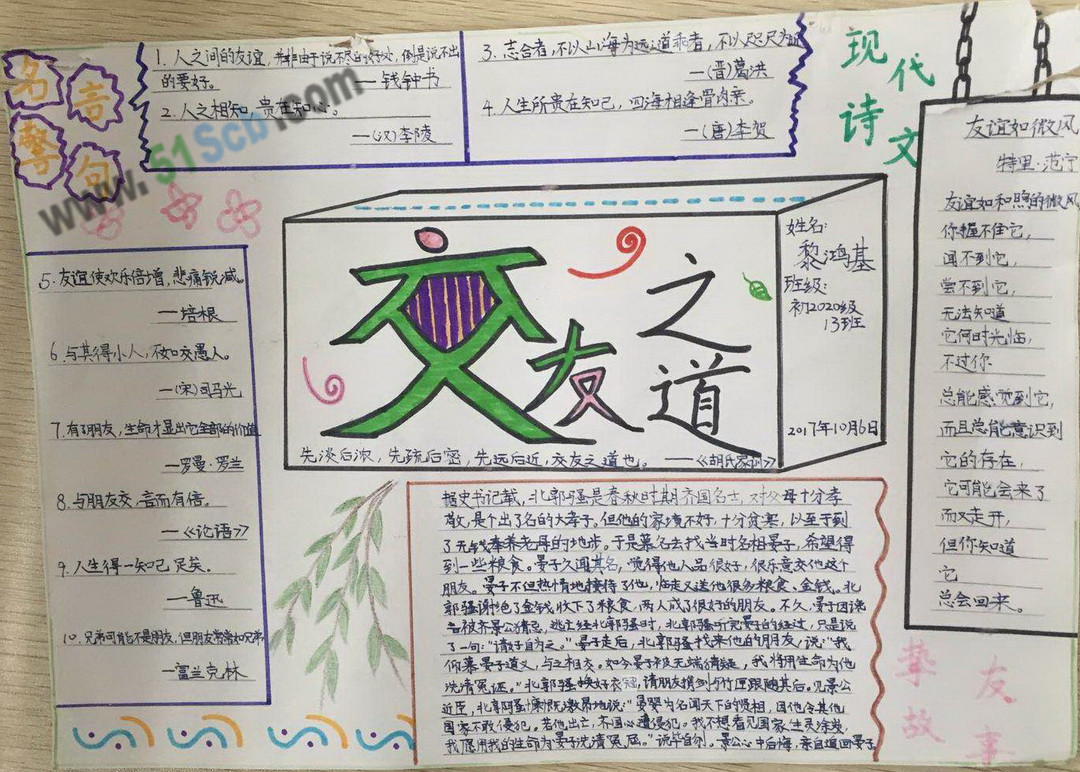 名言警句
1. 人之间的友谊，并非由于说不尽的好处，倒是说不出
的要好。
—钱钟书
2. 人之相知，贵在知心。
—(汉)李陵
3. 志合者，不以山海为远；道乖者，不以咫尺为近
—(晋)葛洪
4. 人生所贵在知己，四海相逢骨肉亲。
—(唐)李贺
www.51Scb.com
5. 友谊使欢乐倍增，悲痛锐减。
—培根
6. 与其得小人，不如交愚人。
—(宋)司马光
7. 有了朋友，生命才显出它全部的价值
—罗曼·罗兰
8. 与朋友交，言而有信。
—《论语》
9. 人生得一知己足矣。
—鲁迅
10. 兄弟可能不是朋友，但朋友常常如兄弟
—富兰克林
交友之道
先淡后浓，先疏后密，先远后近，交友之道也。——《胡氏家训》
姓名：
黎鸿基
班级：
初2020级
13班
2017年10月6日
现代诗文
友谊如微风
特里·范宁
友谊如和煦的微风
你握不住它，
闻不到它，
尝不到它，
无法知道
它何时光临，
不过你
总能感觉到它，
而且总能意识到
它的存在，
它可能会来了
而又走开，
但你知道
它
总会回来。
挚友故事
据史书记载，北郭骚是春秋时期齐国名士，对父母十分孝
敬，是个出了名的大孝子。但他的家境不好，十分贫寒，以至于到
了无钱奉养老母的地步。于是慕名去找当时名相晏子，希望得
到一些粮食。晏子久闻其名，觉得他人品很好，很乐意交他这个
朋友。晏子不但热情地接待了他，临走又送他很多粮食、金钱。北
郭骚谢绝了金钱收下了粮食，两人成了很好的朋友。不久，晏子因谗
言被齐景公猜忌，逃亡经北郭骚时，北郭骚听完晏子的经过，只是说
了一句：“请好自为之。”晏子走后，北郭骚找来他的朋友，说：“我
仰慕晏子道义，与之相交。如今晏子被无端猜疑，我将用生命为他
洗清冤证。”北郭骚换好衣冠，请朋友携剑与竹匣跟随其后。见景公
近至，北郭骚激昂地说：“晏婴为名闻天下的贤相，因他令其他
国家不敢侵犯。若他出亡，齐国必遭侵犯。我不想看见国家生灵涂炭，
我愿用我的生命为晏子洗清冤屈。”说毕自刎。景公心中后悔，亲自追回晏子